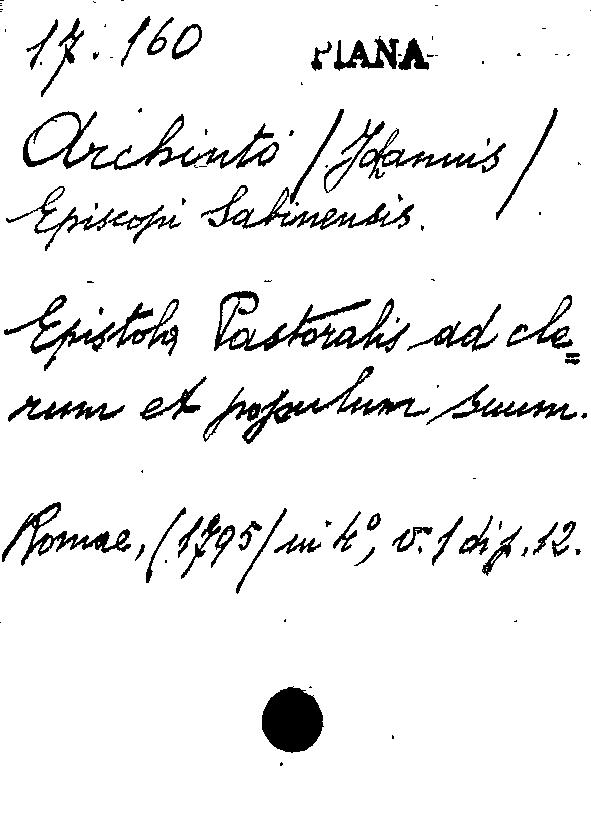 17.160 PIANA
Archinto (Johannis)
Episcopi Sabinensis.
Epistola Pastoralis ad cle=
rum et populum suum.
Romae, (1795) in 4º, v. 1 di p. 12.